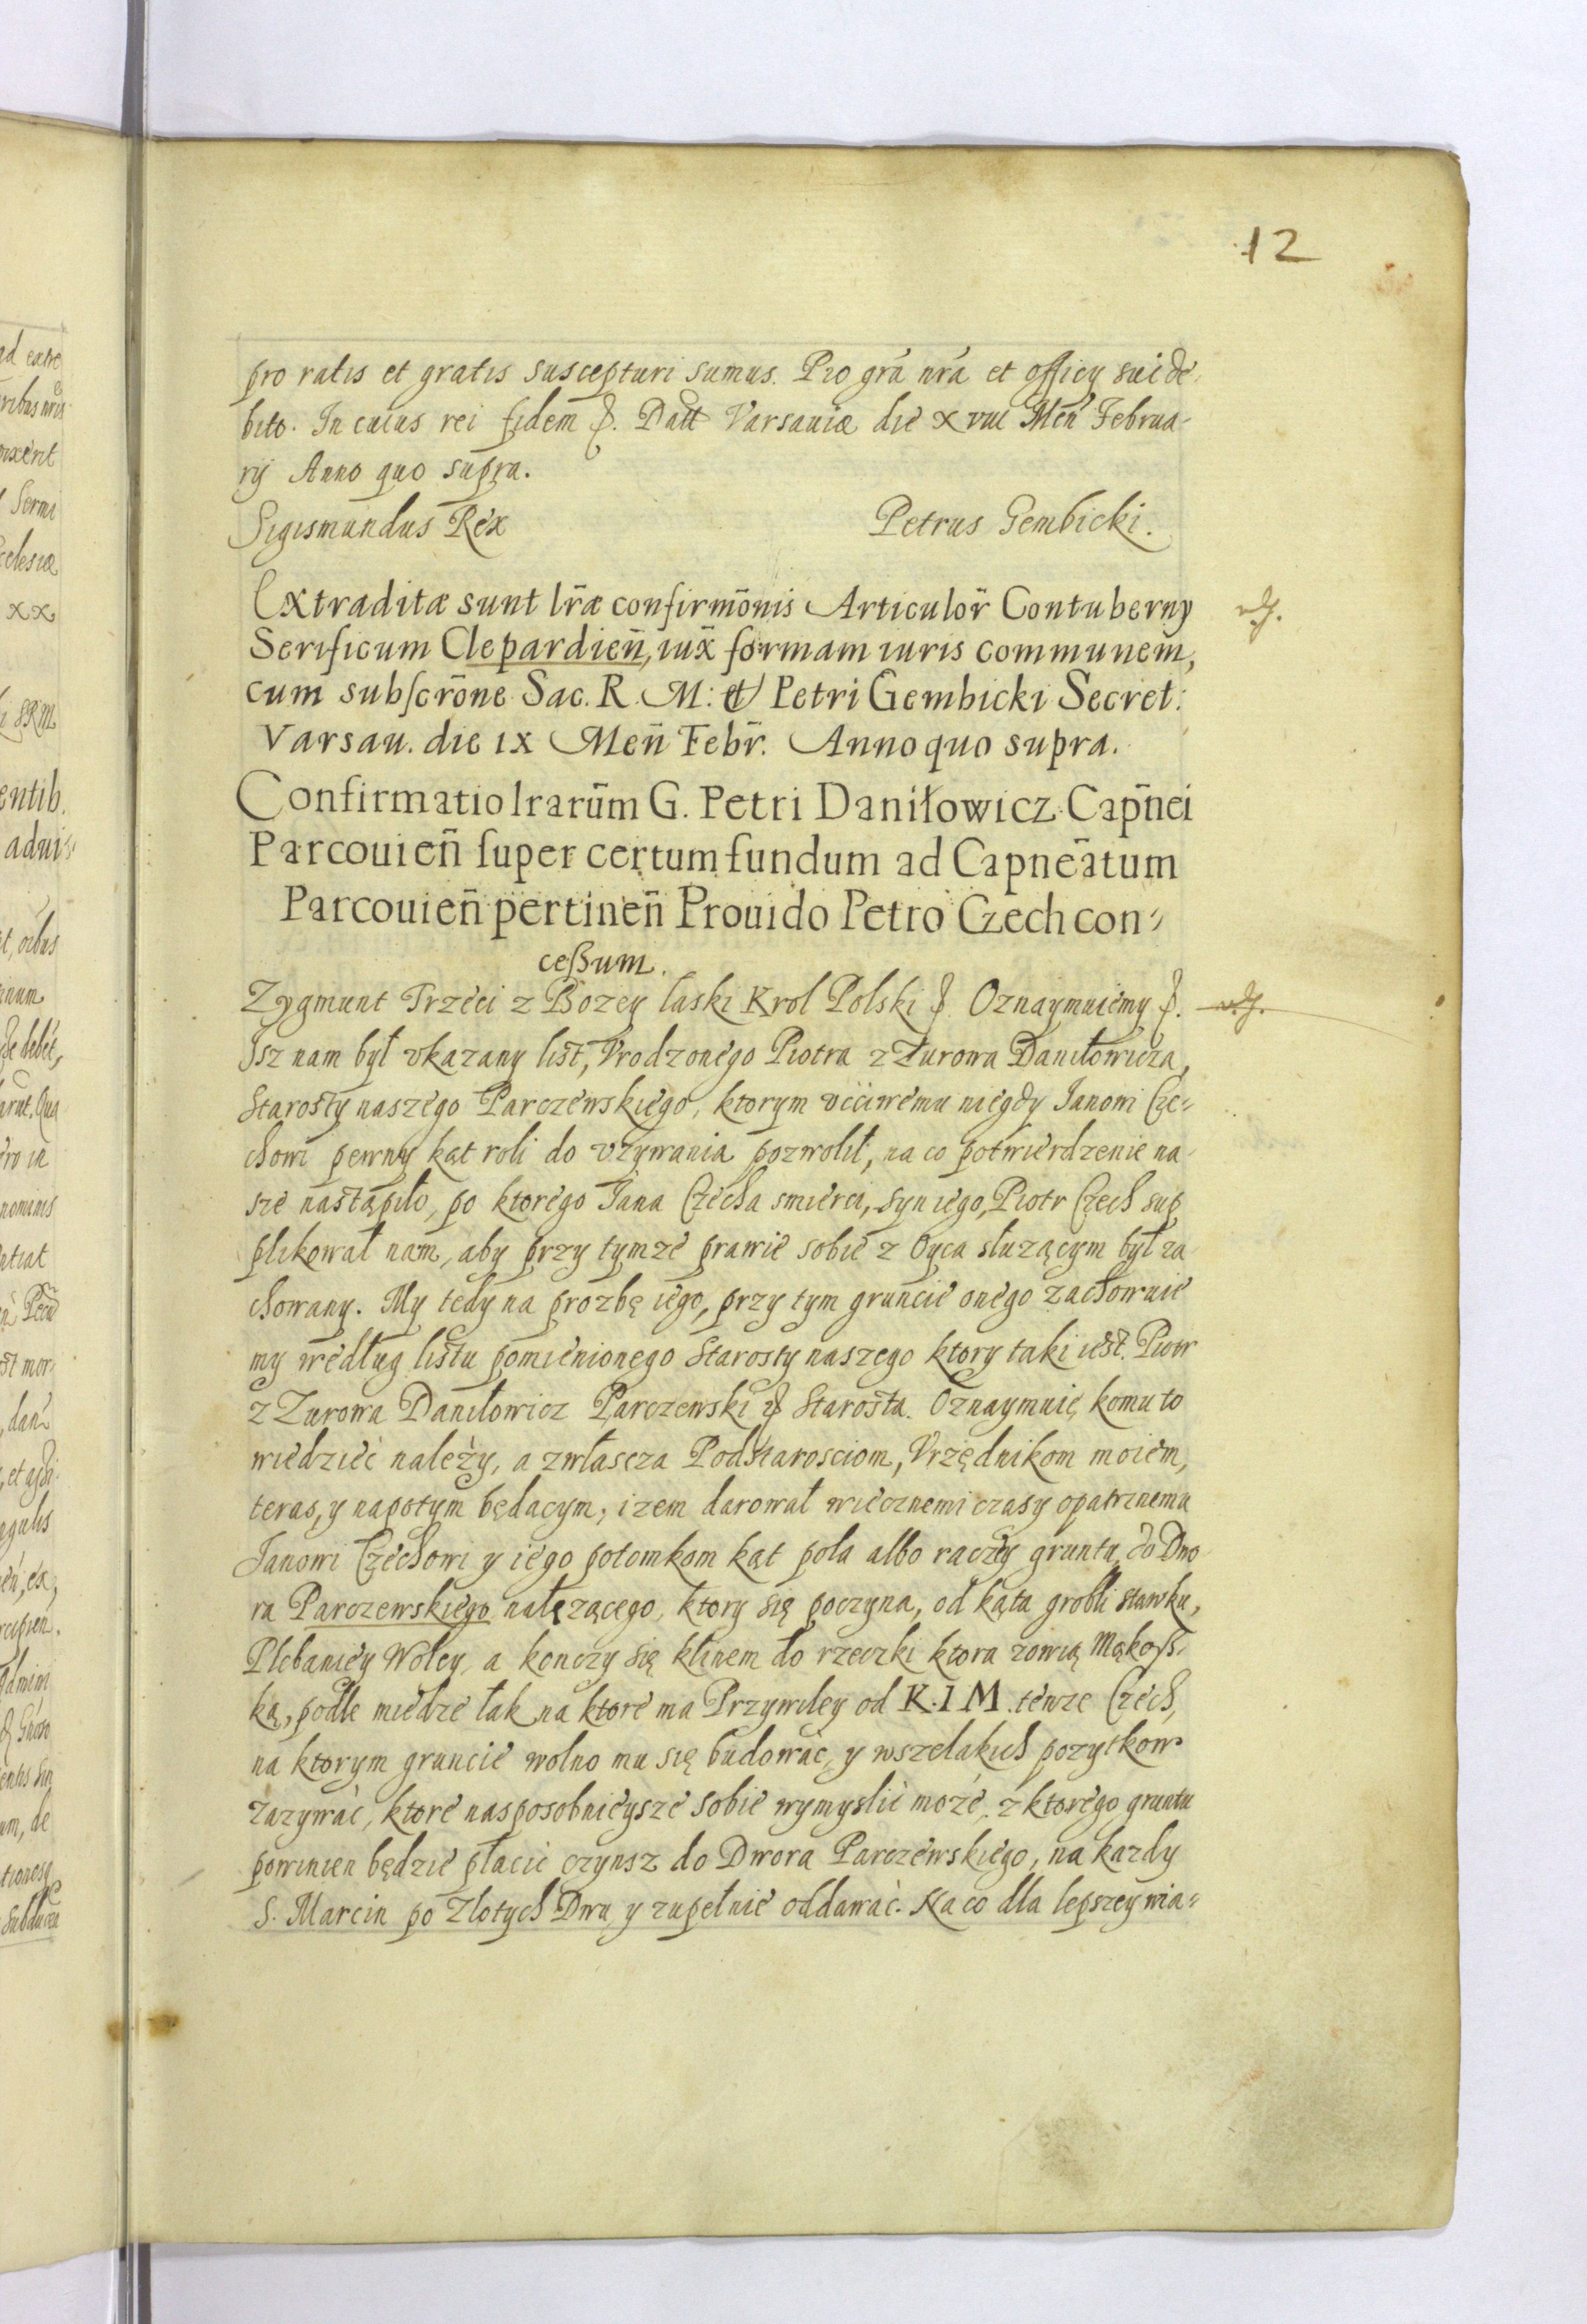 12
pro ratis et gratis suscepturi sumus. Pro grã nrã et officy sui de-
bito. In cuius rei fidem &. Datt Varsauiæ die xviii Men Februa-
rÿ Anno quo supra.
Sigismundus Rex Petrus Gembicki.
Extraditæ sunt lr̃æ confirmõnis Articulor̃ Contuberny
Serificum Clepardieñ, iux̃ formam iuris communem,
cum subscrõne Sac. R. M: et Petri Gembicki Secret:
Varsau. die ix Meñ Febr̃. Anno quo supra.
Confirmatio lrarũm G. Petri Daniłowicz Cap̃nei
Parcouieñ super certum fundum ad Capneãtum
Parcouieñ pertineñ Prouido Petro Czech con-
ceßum.
Zygmunt Trzeci z Bozey laski Krol Polski &. Oznaymuiemy &.
Isz nam był vkazany list, Vrodzonego Piotra z Zurowa Daniłowicza,
Starosty naszego Parczewskiego, ktorym vcciwemu niegdy Janowi Cze-
chowi pewny kąt roli do vzywania pozwolił, na co potwierdzenie na-
sze nastąpiło, po ktorego Jana Czecha smierci, syn iego, Piotr Czech sup
plikował nam, aby przy tymze prawie sobie z Oyca słuzącym był za
chowany. My tedy na prozbę iego, przy tym gruncie onego zachownie
my według listu pomienionego Starosty naszego ktory taki iest. Piotr
z Zurowa Daniłowicz Parczewski & Starosta. Oznaymuię komu to
wiedzieć należy, a zwłascza Podstarosciom, Vrzędnikom moiem,
teras, y napotym będacym, izem darował wiecznemi czasy opatrznemu
Janowi Czechowi y iego potomkom kąt pola albo raczey gruntu do Dwo
ra Parczewskiego należącego, ktory się poczyna, od kąta grobli stawku,
Plebaniey Woley, a konczy się klinem do rzeczki ktora zowią Mąkoss-
ką, podle miedze łak na ktore ma Przywiley od K. I M. tenze Czech,
na ktorym gruncie wolno mu się budować, y wszelakich pozytkow
zazywać, ktore nasposobnieysze sobie wymyslić może, z ktorego gruntu
powinien będzie płacić czynsz do Dwora Parczewskiego, na kazdy
S. Marcin po Złotych Dwu y zupełnie oddawać. Na co dla lepszey wia-